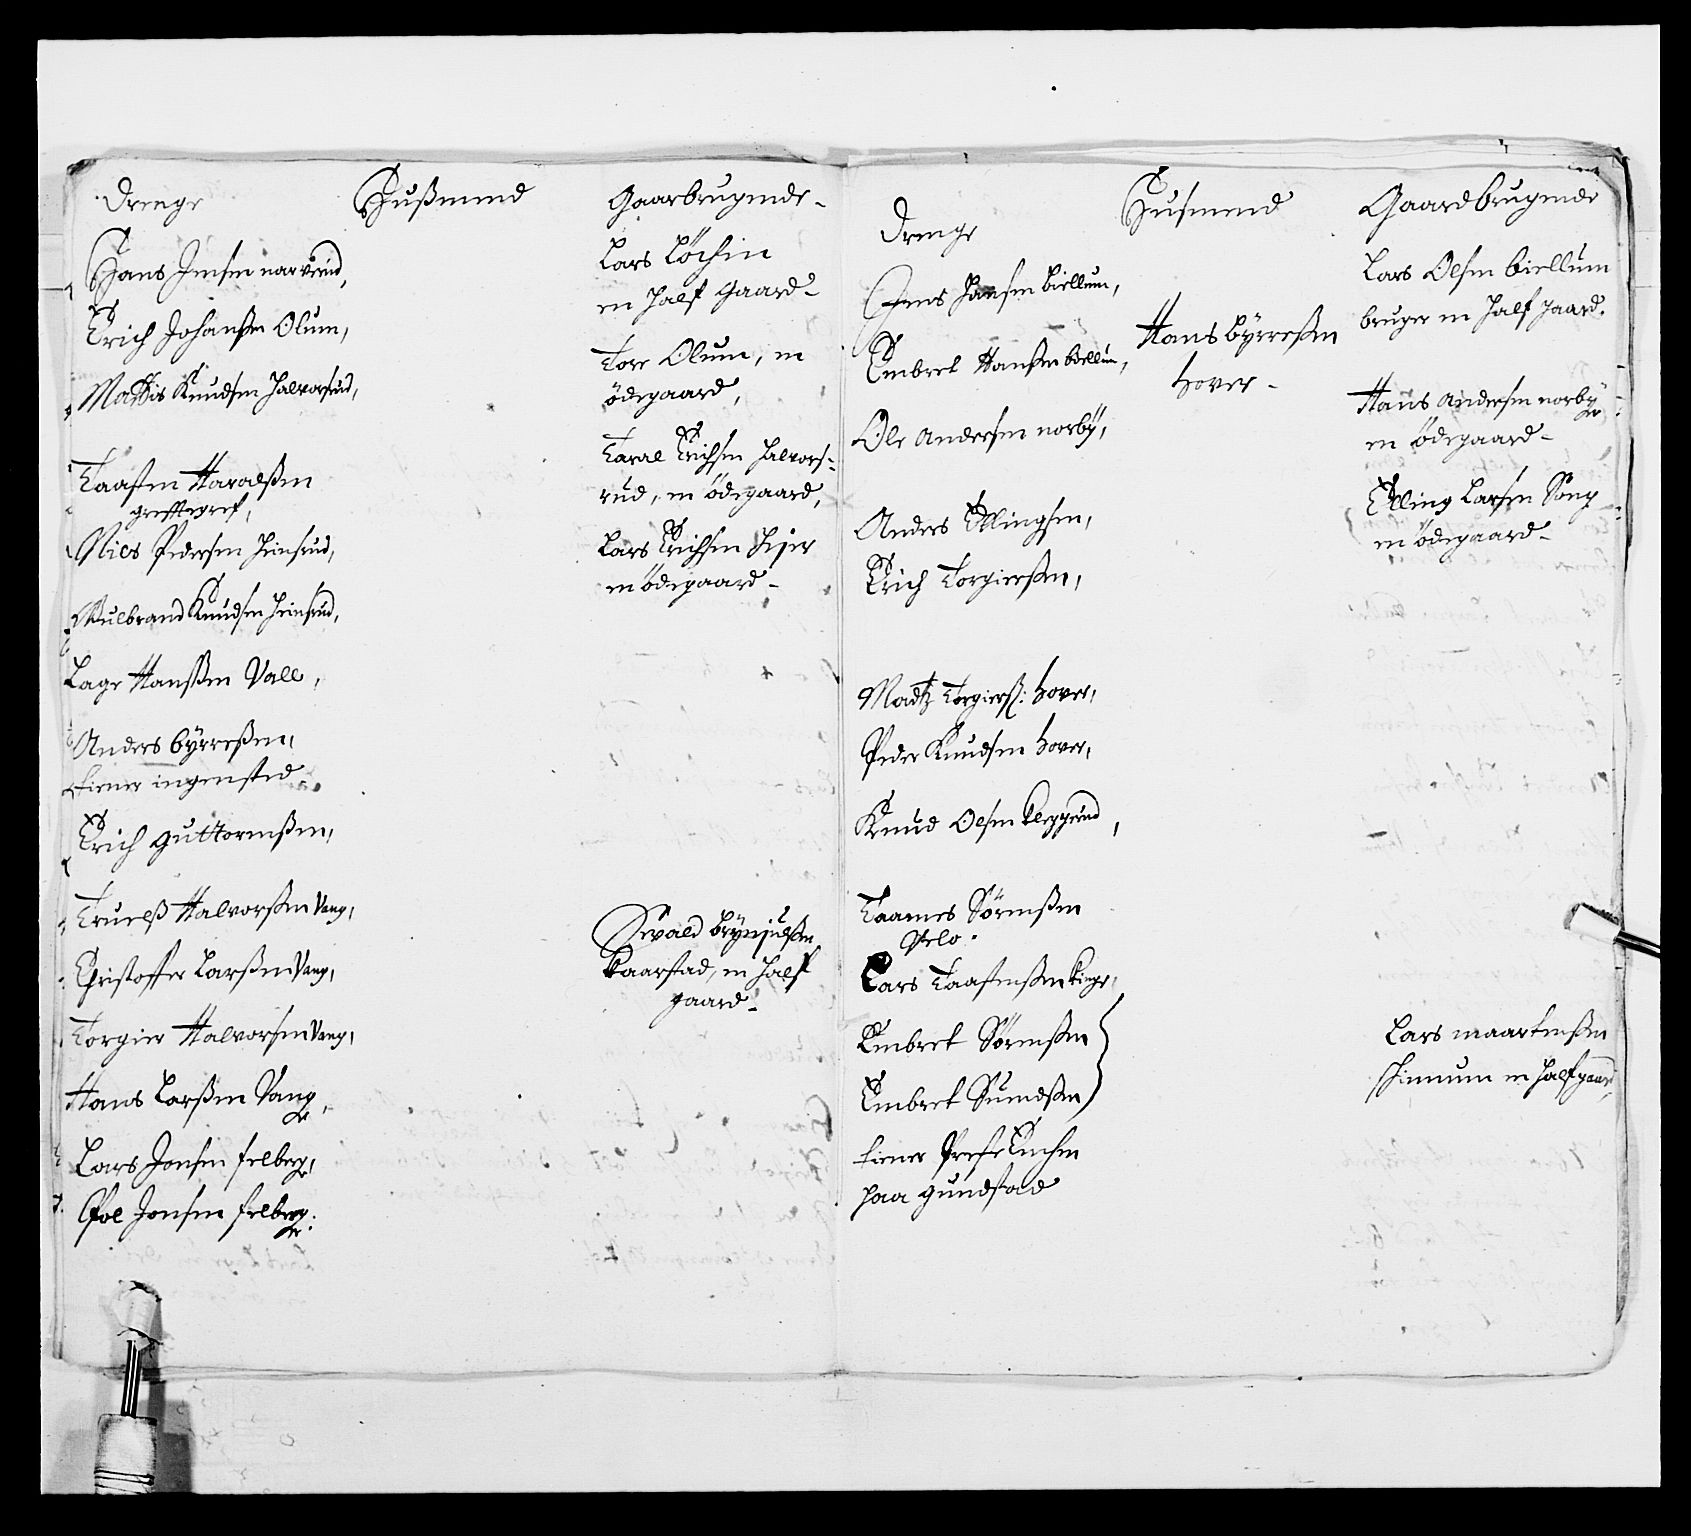 Drenge
Hans Jensen narverud,
Erich Johansen Olum,
Mattis Knudsen Halvorsrud,
Taasten Haraldßen
grefftegref,
Niels Pedersen Heinsrud,
Gulbrand Knudsen Heinsrud,
Lage Hanßen Vall,
Anders byrreßen,
tiener ingensted
Erich Guttormßen,
Truelß Halvorßen Vang,
Christoffer Larßen Vang,
Torgier Halvorsen Vang,
Hans Larßen Vang,
Lars Jonsen felberg,
Poel Jonsen felberg:
Hußmend
Gaarbrugende-
Lars Löchin
en half gaard-
Tore Olum, en
ödegaard,
Taral Erichsen Halvors-
rud, en ödegaard,
Lars Erichsen
en ödegaard-
Sevald Brynjulsen
Kaarstad, en half
gaard-
Drenge
Jens Hansen biellum,
Embret Hansen biellum,
Ole Andersen norby,
Anders Ellingsen,
Erich Torgierßen,
Madtz Torgierß: hover,
Peder Knudsen hover,
Knud Olsen kleggerud,
Taames Sörenßen
Velo.
Lars Taastenßen Kinge,
Embret Sörenßen
Embret Suendsen
tiener Presten
paa gundstad
Husmend
Hans byrreßen
hover-
Gaardbrugende
Lars Olsen biellum
bruger en half gaard.
Hans Andersen norby
en ödegaard-
Elling Larsen Söng
en ödegaard-
Lars maartenßen
Skinnum en half gaard,